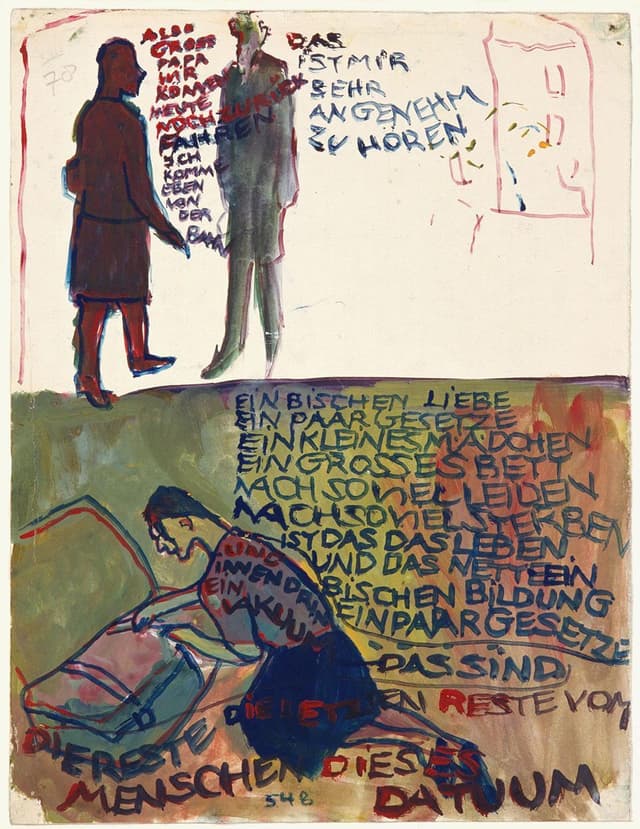 70
ALSO
GROSS
PAPA
WIR
KÖNNEN
HEUTE
NOCH ZURÜCK
FAHREN
ICH
KOMME
EBEN
VON
DER
BAHN
DAS
IST MIR
SEHR
ANGENEHM
ZU HÖREN
EIN BISCHEN LIEBE
EIN PAAR GESETZE
EIN KLEINES MÄDCHEN
EIN GROSSES BETT
NACH SOVIEL LEIDEN
NACH SOVIEL STERBEN
IST DAS DAS LEBEN
UND DAS NETTE EIN
BISCHEN BILDUNG
EIN PAAR GESETZE
UND
INNENDRIN
EIN
VAKUUM
DAS SIND
DIE RESTE DIE LETZTEN RESTE VOM
MENSCHEN DIESES
DATUUM
548